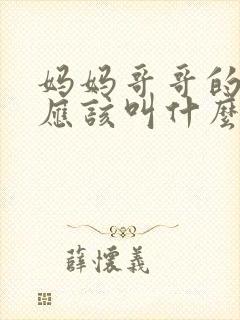 妈妈哥哥的
應該叫什麼
薛懷義